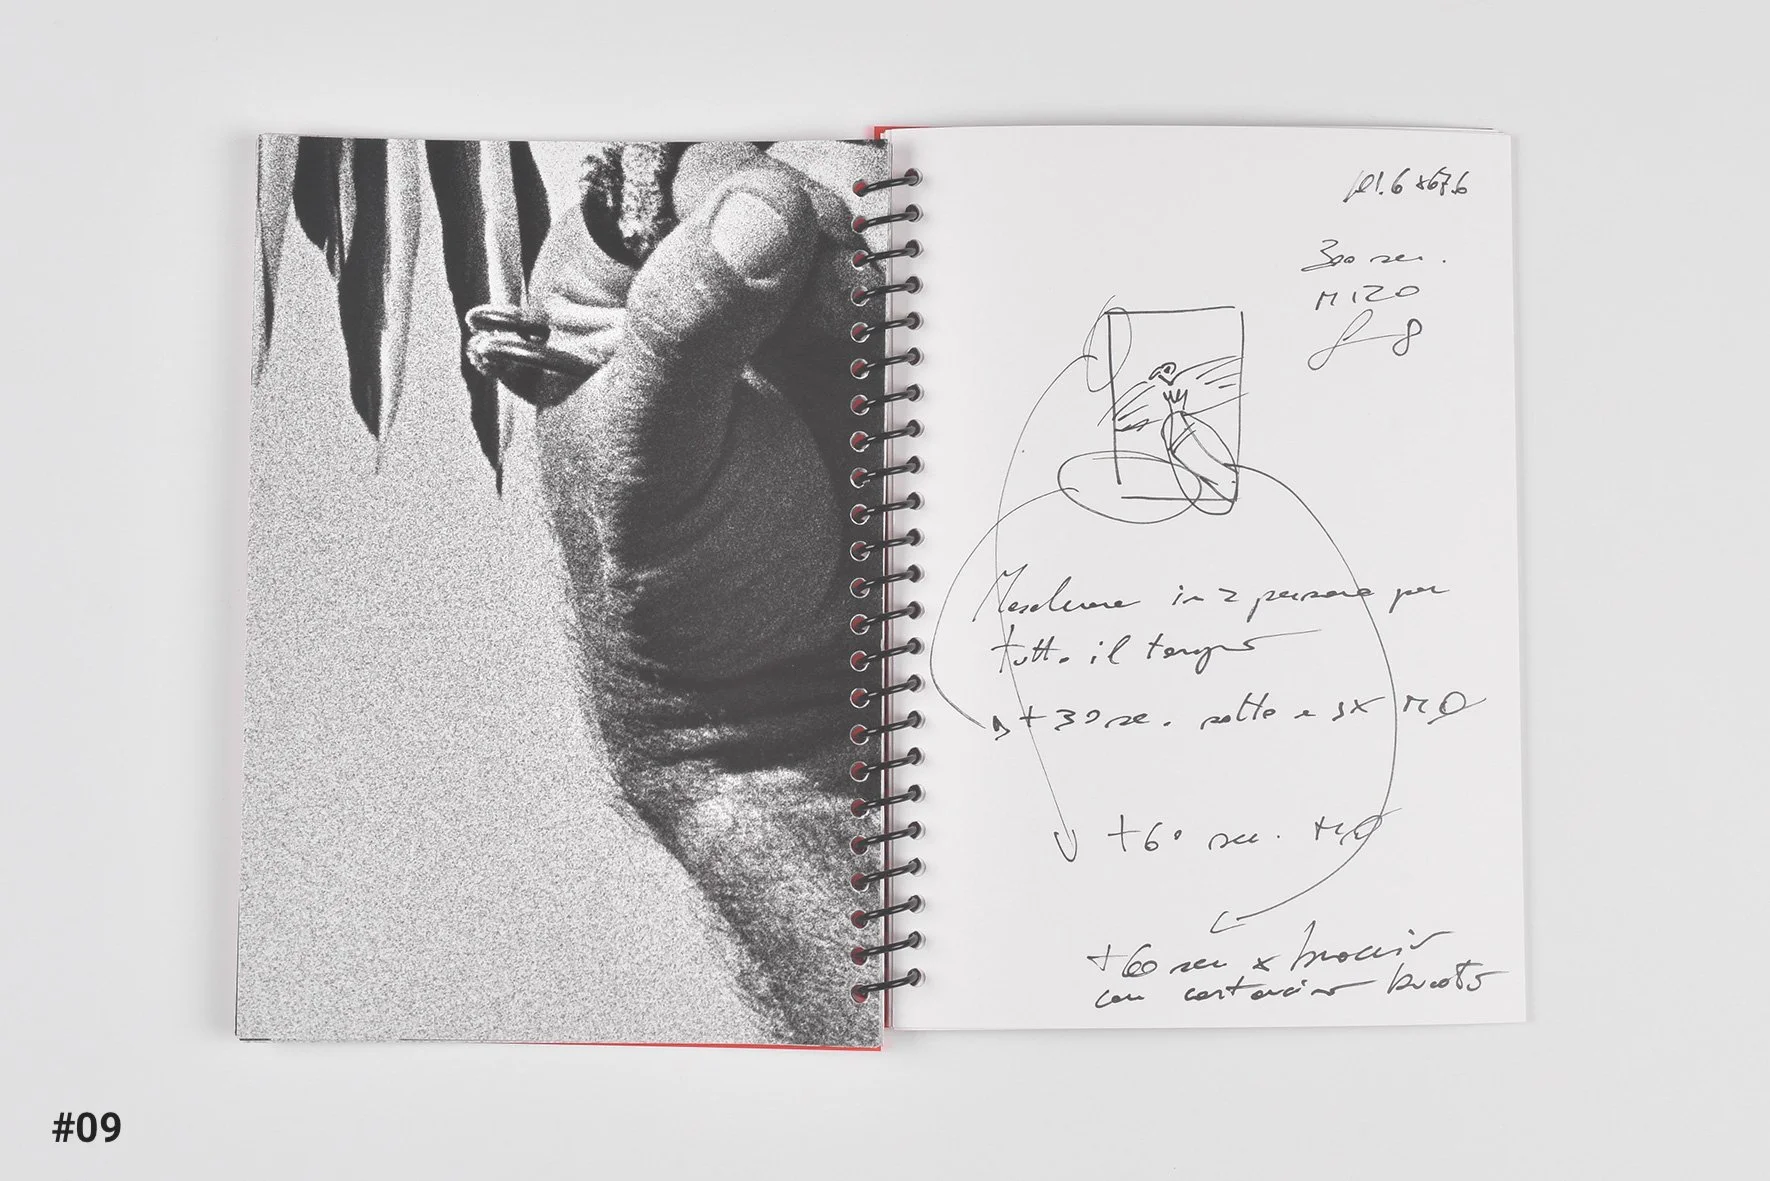 300 sec.
M 120
f 8
Mascherare in 2 persone per
tutto il tempo
+ 30 sec. sotto e sx M 0
+ 60 sec. M 0
+ 60 sec x braccio
con cartoncino bucato
#09